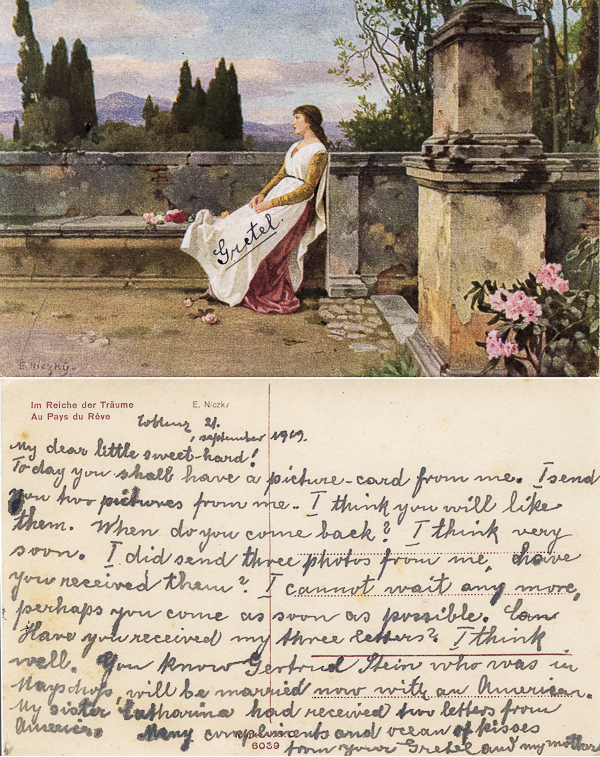 Gretel.
E. Niczky
Im Reiche der Träume
Au Pays du Rêve
E. Niczky
Coblenz 21.
september 1919.
My dear little sweet-hard!
To day you shall have a picture-card from me. I send
you two pictures from me. I think you will like
them. When do you come back? I think very
soon. I did send three photos from me, have
you received them? I cannot wait any more,
perhaps you come as soon as possible.
Have you received my three letters? I think
well. You know Gertrud Stein who was in
Mayschoß, will be married now with an American.
My sister Catharina had received two letters from
America. Many compliments and ocean of kisses
6039
from your Gretel and my mother